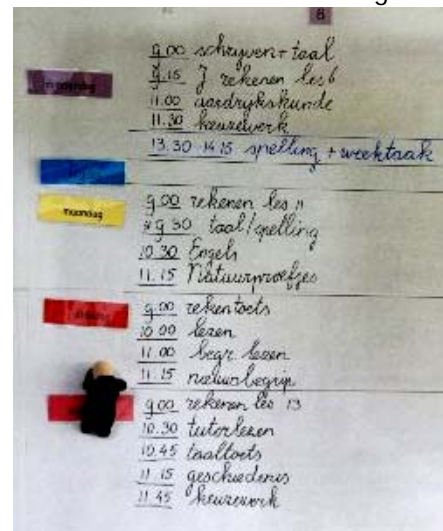 8
9.00 schrijven + taal
9.15 J rekenen les 6
11.00 aardrijkskunde
11.30 keuzewerk
13.30 14.15 spelling + weektaak
maandag
9.00 rekenen les 11
9.30 taal/spelling
10.30 Engels
11.15 Natuurproefjes
9.00 rekentoets
10.00 lezen
11.00 begr lezen
11.15 natuurbegrip
9.00 rekenen les 13
10.30 tutorlezen
10.45 taaltoets
11.15 geschiedenis
11.45 keuzewerk